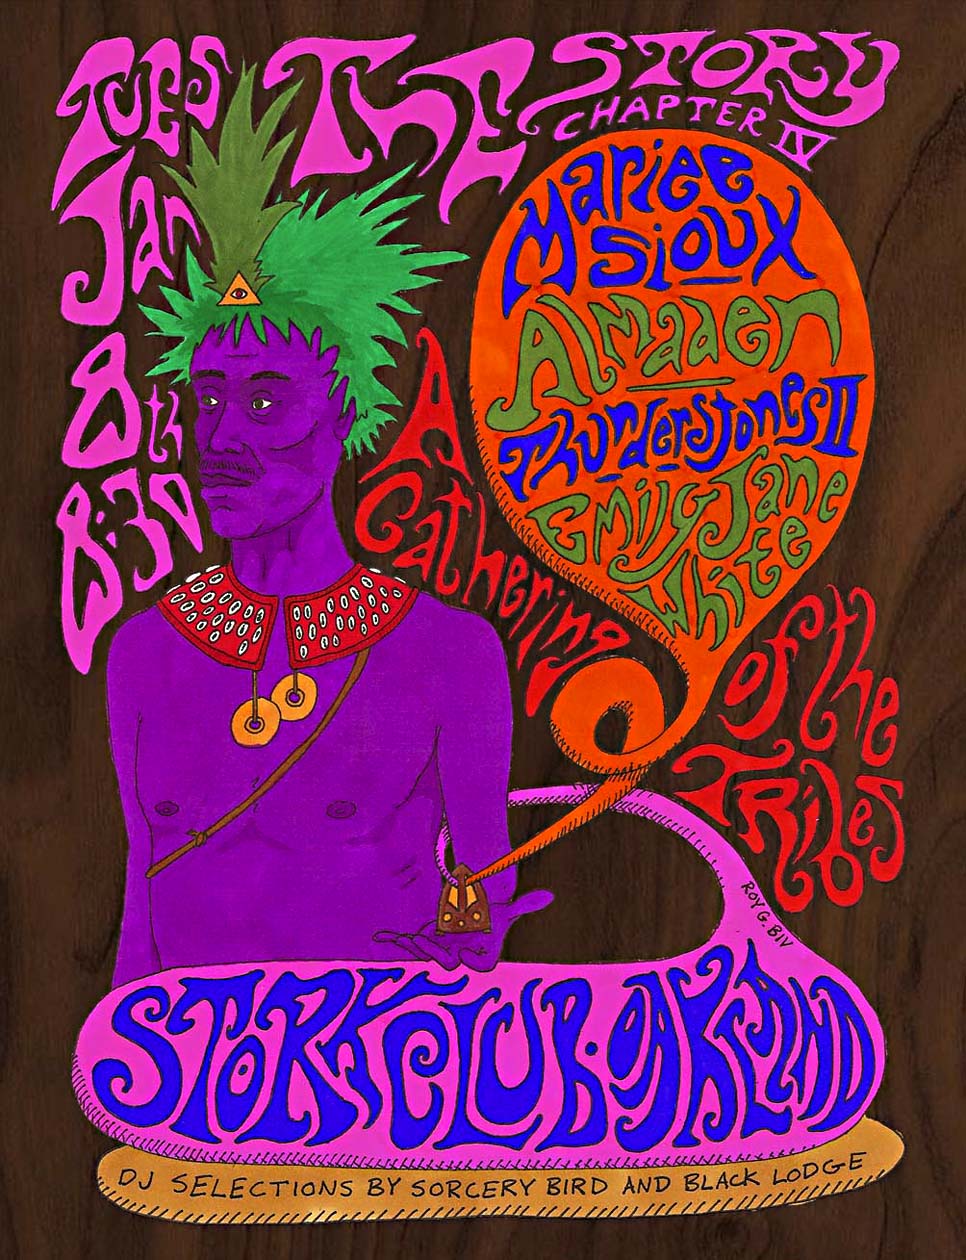 THE STORY
CHAPTER IV
TUES
Jan
8th
8:30
Mariee
Sioux
Almaden
Thunderstones II
Emily Jane
White
A
Gathering
of the
Tribes
ROY G. BIV
STORK CLUB·OAKLAND
DJ SELECTIONS BY SORCERY BIRD AND BLACK LODGE